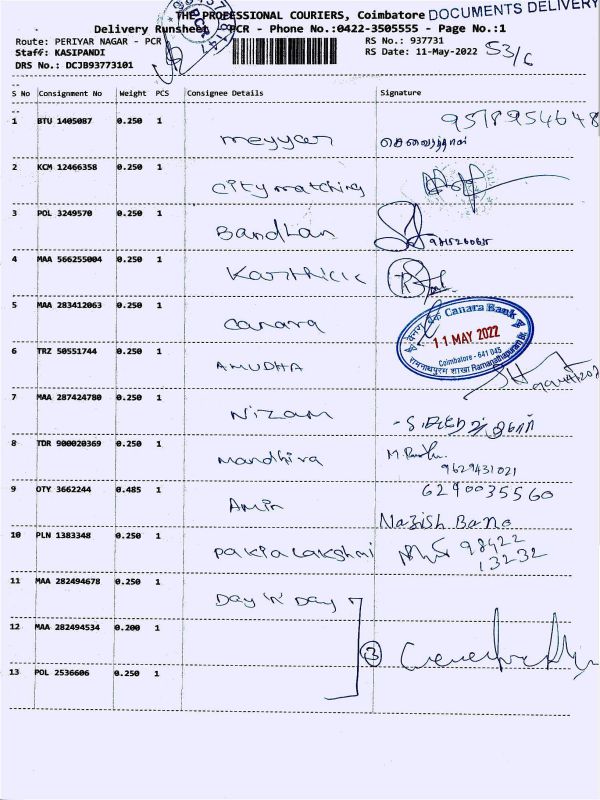 THE PROFESSIONAL COURIERS, Coimbatore DOCUMENTS DELIVERY
Delivery Runsheet PCR - Phone No.:0422-3505555 - Page No.:1
Route: PERIYAR NAGAR - PCR RS No.: 937731
Staff: KASIPANDI RS Date: 11-May-2022 53/6
DRS No.: DCJB93773101
S No Consignment No Weight PCS Consignee Details Signature
1 BTU 1405087 0.250 1 9518954648
meyyar
2 KCM 12466358 0.250 1
City matching
3 POL 3249570 0.250 1
Bandhan
4 MAA 566255004 0.250 1
Karthick
5 MAA 283412063 0.250 1
Canara
केनरा बैंक Canara Bank
11 MAY 2022
Coimbatore - 641 045
रामनाथपुरम शाखा Ramanathapuram Br.
6 TRZ 50551744 0.250 1
AMUDHA
7 MAA 287424780 0.250 1
Nizam
8 TDR 900020369 0.250 1
Mandhira
9629431021
9 OTY 3662244 0.485 1 6290035560
Amin Nazish Bano
10 PLN 1383348 0.250 1
Pakia Lakshmi 98422
13232
11 MAA 282494678 0.250 1
Day 'N' Day
12 MAA 282494534 0.200 1
3
13 POL 2536606 0.250 1